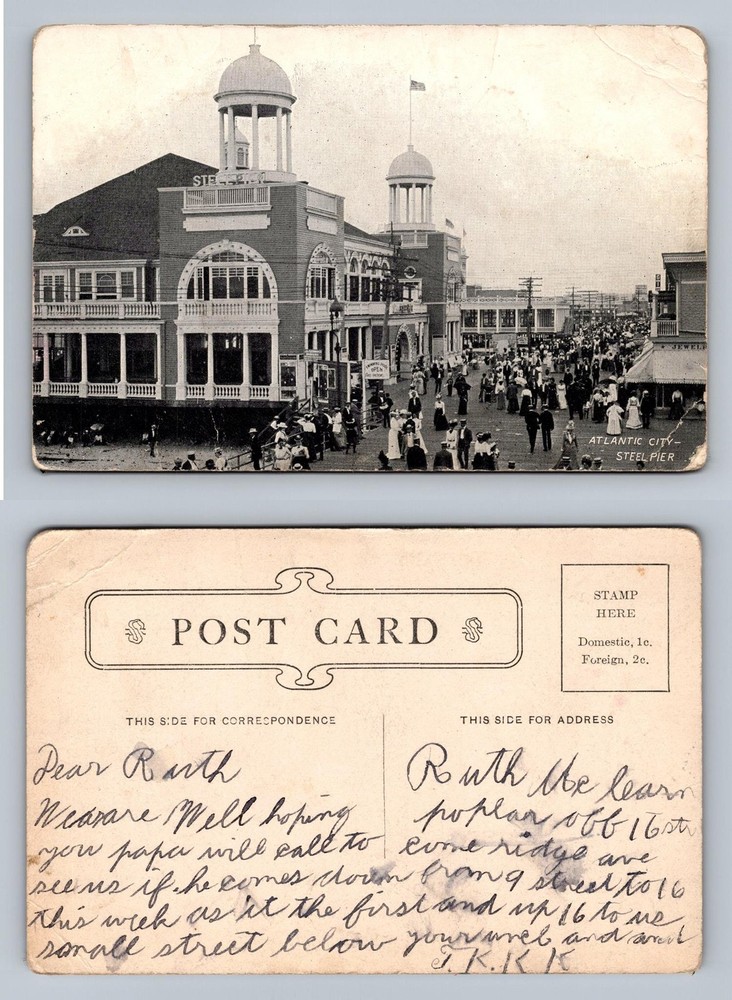 STEEL PIER
JEWEL
ATLANTIC CITY-
STEEL PIER
POST CARD
STAMP
HERE
Domestic, 1c.
Foreign, 2c.
THIS SIDE FOR CORRESPONDENCE
THIS SIDE FOR ADDRESS
Dear Ruth
We are Well hoping
you papa will call to
see us if he comes down
this week as it the first
small street below
Ruth Mc learn
poplar obb 16 str
come ridge ave
from 9 street to 16
and up 16 to us
your uncl and
J. K. K K